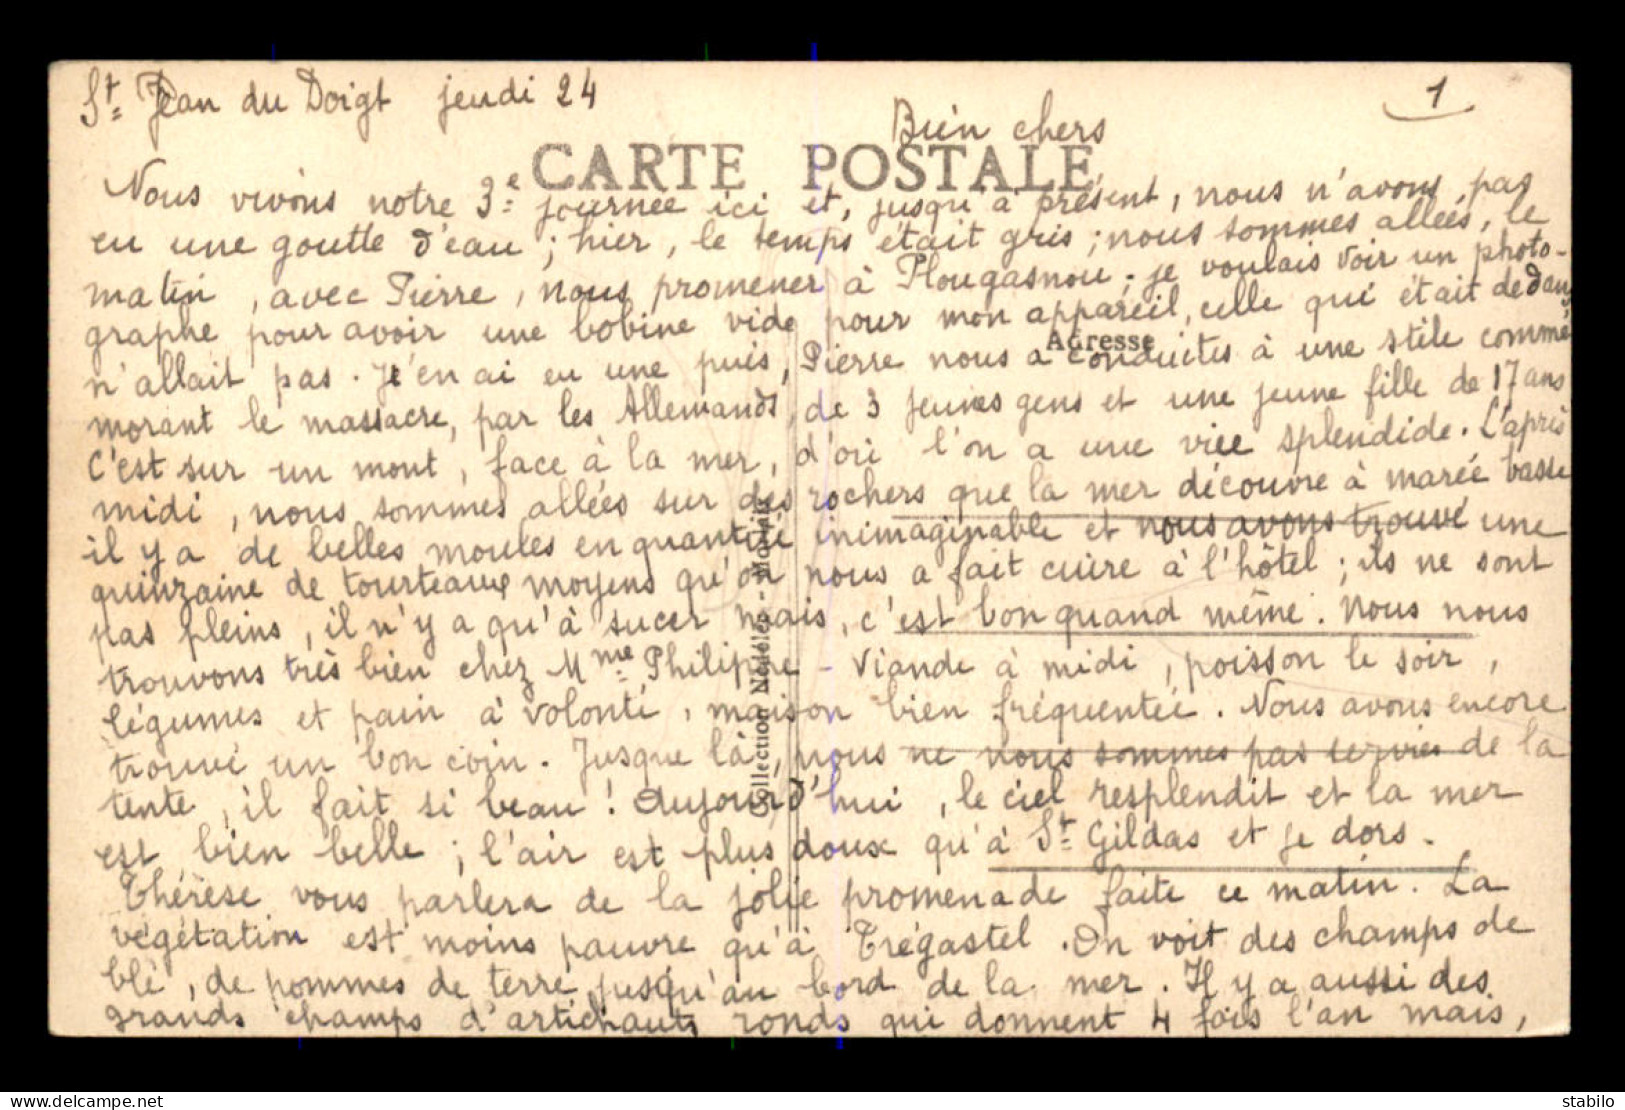 St Jean du Doigt jeudi 24
1
Bien chers
CARTE POSTALE
Nous vivons notre 3e journée ici et, jusqu'à présent, nous n'avons pas
eu une goutte d'eau ; hier, le temps était gris ; nous sommes allées, le
matin, avec Pierre, nous promener à Plougasnou ; je voulais voir un photo-
graphe pour avoir une bobine vide pour mon appareil, celle qui était dedans
Adresse
n'allait pas. J'en ai eu une puis, Pierre nous a conduites à une stèle commé
morant le massacre, par les Allemands, de 3 jeunes gens et une jeune fille de 17 ans
C'est sur un mont, face à la mer, d'où l'on a une vue splendide. L'après
midi, nous sommes allées sur des rochers que la mer découvre à marée basse
il y a de belles moules en quantité inimaginable et nous avons trouvé une
quinzaine de tourteaux moyens qu'on nous a fait cuire à l'hôtel ; ils ne sont
pas pleins, il n'y a qu'à sucer mais, c'est bon quand même. Nous nous
trouvons très bien chez Mme Philippe - Viande à midi, poisson le soir,
légumes et pain à volonté, maison bien fréquentée. Nous avons encore
trouvé un bon coin. Jusque là, nous ne nous sommes pas servies de la
tente, il fait si beau ! Aujourd'hui, le ciel resplendit et la mer
est bien belle ; l'air est plus doux qu'à St Gildas et je dors.
Thérèse vous parlera de la jolie promenade faite ce matin. La
végétation est moins pauvre qu'à Trégastel. On voit des champs de
blé, de pommes de terre jusqu'au bord de la mer. Il y a aussi des
grands champs d'artichauts ronds qui donnent 4 fois l'an mais,
Collection Nédélec - Morlaix
www.delcampe.net
stabilo